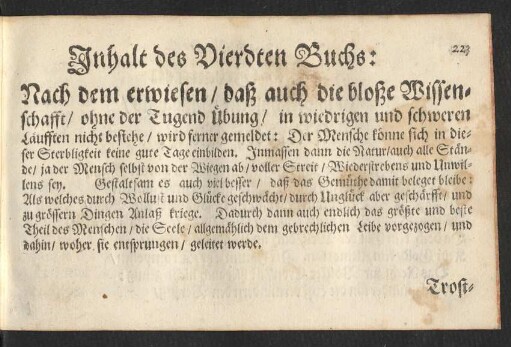 223
Inhalt des Vierdten Buchs:
Nach dem erwiesen / daß auch die bloße Wissen-
schafft / ohne der Tugend Übung / in wiedrigen und schweren
Läufften nicht bestehe / wird ferner gemeldet: Der Mensche könne sich in die-
ser Sterbligkeit keine gute Tage einbilden. Inmassen dann die Natur / auch alle Stän-
de / ja der Mensch selbst von der Wiegen ab / voller Streit / Wiederstrebens und Unwil-
lens sey. Gestaltsam es auch viel besser / daß das Gemühte damit beleget bleibe:
Als welches durch Wollust und Glücke geschwächt / durch Unglück aber geschärfft / und
zu grössern Dingen Anlaß kriege. Dadurch dann auch endlich das größte und beste
Theil des Menschen / die Seele / allgemählich dem gebrechlichen Leibe vorgezogen / und
dahin / woher sie entsprungen / geleitet werde.
Trost-